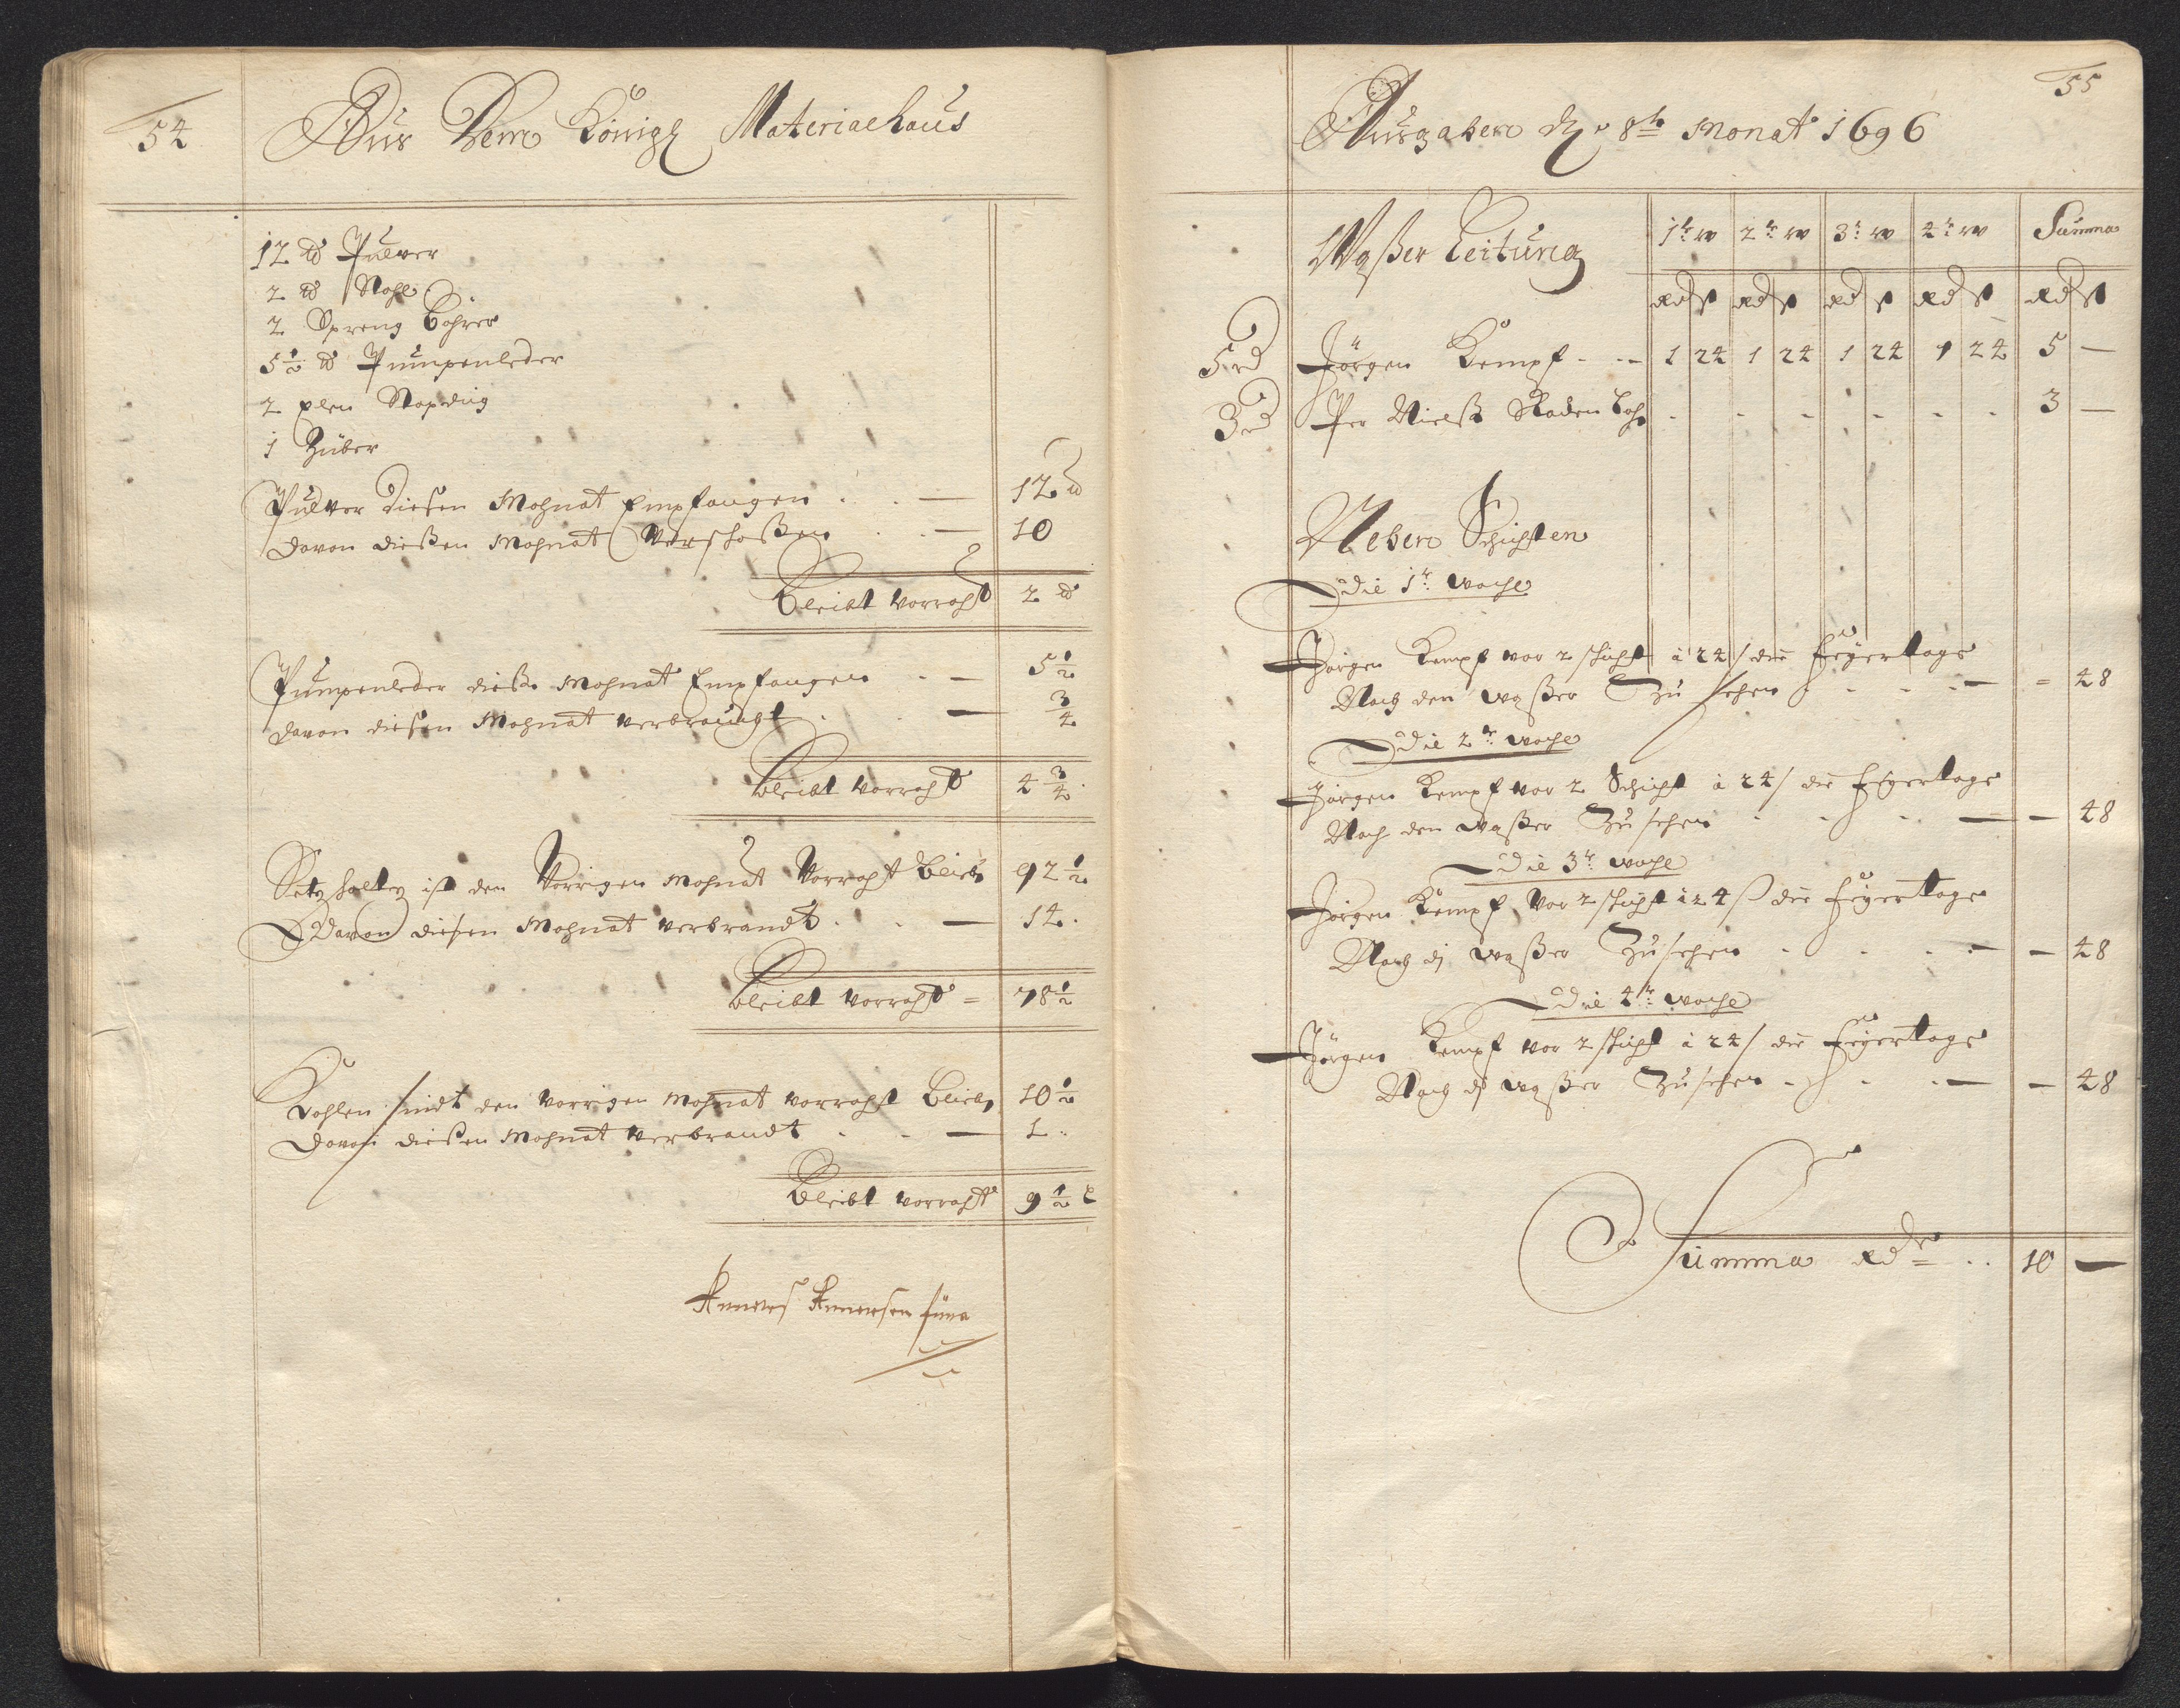 54
Aus Dem Königl Materialhaus
12 ℔ Pulver
2 ℔ Stahl
2 Spreng Bohrer
5 1/2 ℔ Pumpenleder
2
1 Züber
Pulver diesen Mohnat Empfangen . . — 12 ℔
Davon dießen Mohnat Verschoßen . . — 10
Bleibt Vorraht 2 ℔
Pumpenleder dieße Mohnat Empfangen . — 5 1/2
Davon diesen Mohnat verbraucht . . — 3/4
Bleibt Vorraht 4 3/4
Setzholtz ist den Vorrigen Mohnat Vorraht Blieb 92 1/2
Davon diesen Mohnat verbrandt . . — 14.
Bleibt Vorraht = 78 1/2
Kohlen sindt den Vorrigen Mohnat Vorraht Blieb 10 1/2
Davon dießen Mohnat verbrandt . . — 1..
Bleibt Vorraht 9 1/2 L
Anners Annersen
55
Ausgaben 8te Monat 1696
Waßer Leitung 1te w 2te w 3te w 4te w Summa
Rd ß Rd ß Rd ß Rd ß Rd ß
5 rd Jörgen Kempf - -- 1 24 1 24 1 24 1 24 5 —
3 rd Per Nielß - - - - - - 3 —
Neben Schichten
Die 1te Woche
Jörgen Kempf vor 2 schicht à 24 ß die Feyertage
Nach den Waßer Zu sehen - - - — = 48
Die 2te Woche
Jörgen Kempf vor 2 Schicht à 24 ß die Feyertage
Nach den Waßer Zu sehen - - - — — 48
Die 3te Woche
Jörgen Kempf Vor 2 schicht à 24 ß die Feyertage
Nach dj Waßer Zu sehen - - - — — 48
Die 4te Woche
Jörgen Kempf vor 2 schicht à 24 ß die Feyertage
Nach dj Waßer Zu sehen - - - — — 48
Summa Rdr = .. 10 —